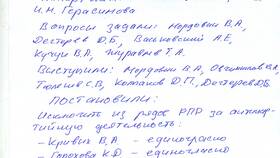 И.М. Герасимова
Вопросы задали: Мордовин В.А.,
Дегтерев Д.Б., Вашковский А.Е,
Кучук В.А., Журавлев Т.А.
Выступили: Мордовин В.А., Овчинников В.А,
Тюленев С.В., Котанов Д.П., Дегтерев Д.Б.
ПОСТАНОВИЛИ:
Исключить из рядов РПР за антипар-
тийную деятельность:
- Кривих В.А – единогласно
- Горохова К.Д – единогласно